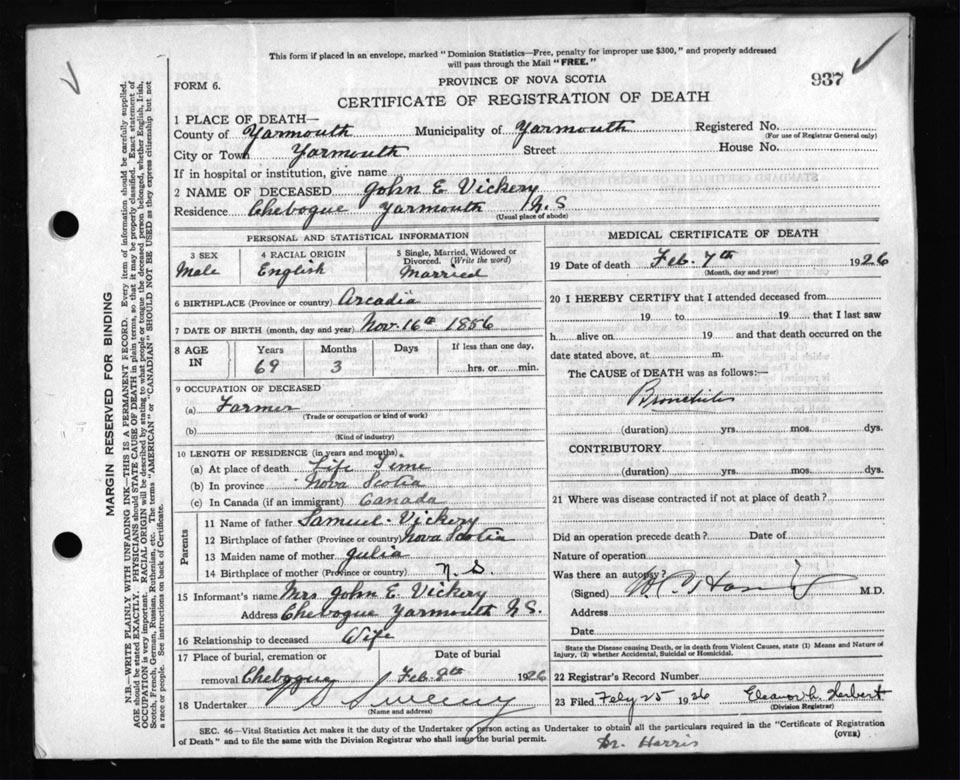 This form if placed in an envelope, marked "Dominion Statistics—Free, penalty for improper use $300," and properly addressed
will pass through the Mail "FREE."
937
FORM 6.
PROVINCE OF NOVA SCOTIA
CERTIFICATE OF REGISTRATION OF DEATH
1 PLACE OF DEATH—
County of Yarmouth Municipality of Yarmouth Registered No.
(For use of Registrar General only)
City or Town Yarmouth Street House No.
If in hospital or institution, give name
2 NAME OF DECEASED John E Vickery
Residence Chebogue Yarmouth N.S
(Usual place of abode)
PERSONAL AND STATISTICAL INFORMATION
3 SEX 4 RACIAL ORIGIN 5 Single, Married, Widowed or
Divorced. (Write the word)
Male English Married
6 BIRTHPLACE (Province or country) Arcadia
7 DATE OF BIRTH (month, day and year) Nov. 16th 1856
8 AGE IN Years Months Days If less than one day,
69 3 hrs. or min.
9 OCCUPATION OF DECEASED
(a) Farmer
(Trade or occupation or kind of work)
(b)
(Kind of industry)
10 LENGTH OF RESIDENCE (in years and months).
(a) At place of death Life Time
(b) In province Nova Scotia
(c) In Canada (if an immigrant) Canada
Parents
11 Name of father Samuel Vickery
12 Birthplace of father (Province or country) Nova Scotia
13 Maiden name of mother Julia
14 Birthplace of mother (Province or country) N.S.
15 Informant's name Mrs John E. Vickery
Address Chebogue Yarmouth N.S.
16 Relationship to deceased Wife
17 Place of burial, cremation or Date of burial
removal Chebogue Feb. 9th 1926
18 Undertaker Sweeny
(Name and address)
MEDICAL CERTIFICATE OF DEATH
19 Date of death Feb. 7th 1926
(Month, day and year)
20 I HEREBY CERTIFY that I attended deceased from
19 to 19 that I last saw
h alive on 19 and that death occurred on the
date stated above, at m.
The CAUSE of DEATH was as follows:—
Bronchitis
(duration) yrs. mos. dys.
CONTRIBUTORY
(duration) yrs. mos. dys.
21 Where was disease contracted if not at place of death?
Did an operation precede death? Date of
Nature of operation
Was there an autopsy?
(Signed) M.D.
Address
Date
State the Disease causing Death, or in death from Violent Causes, state (1) Means and Nature of
Injury, (2) whether Accidental, Suicidal or Homicidal.
22 Registrar's Record Number
23 Filed Feby 25 1926 Eleanor L. Herbert
(Division Registrar)
SEC. 46—Vital Statistics Act makes it the duty of the Undertaker or person acting as Undertaker to obtain all the particulars required in the "Certificate of Registration
of Death" and to file the same with the Division Registrar who shall issue the burial permit.
(OVER)
Dr. Harris
MARGIN RESERVED FOR BINDING
N.B.—WRITE PLAINLY WITH UNFADING INK—THIS IS A PERMANENT RECORD. Every item of information should be carefully supplied.
AGE should be stated EXACTLY. PHYSICIANS should STATE CAUSE OF DEATH in plain terms, so that it may be properly classified. Exact statement of
OCCUPATION is very important. RACIAL ORIGIN will be described by stating to what people or tongue the deceased person belonged, whether English, Irish,
Scotch, French, German, Russian, Ruthenian, etc. The terms "AMERICAN" or "CANADIAN" SHOULD NOT BE USED as they express citizenship but not
a race or people. See instructions on back of Certificate.